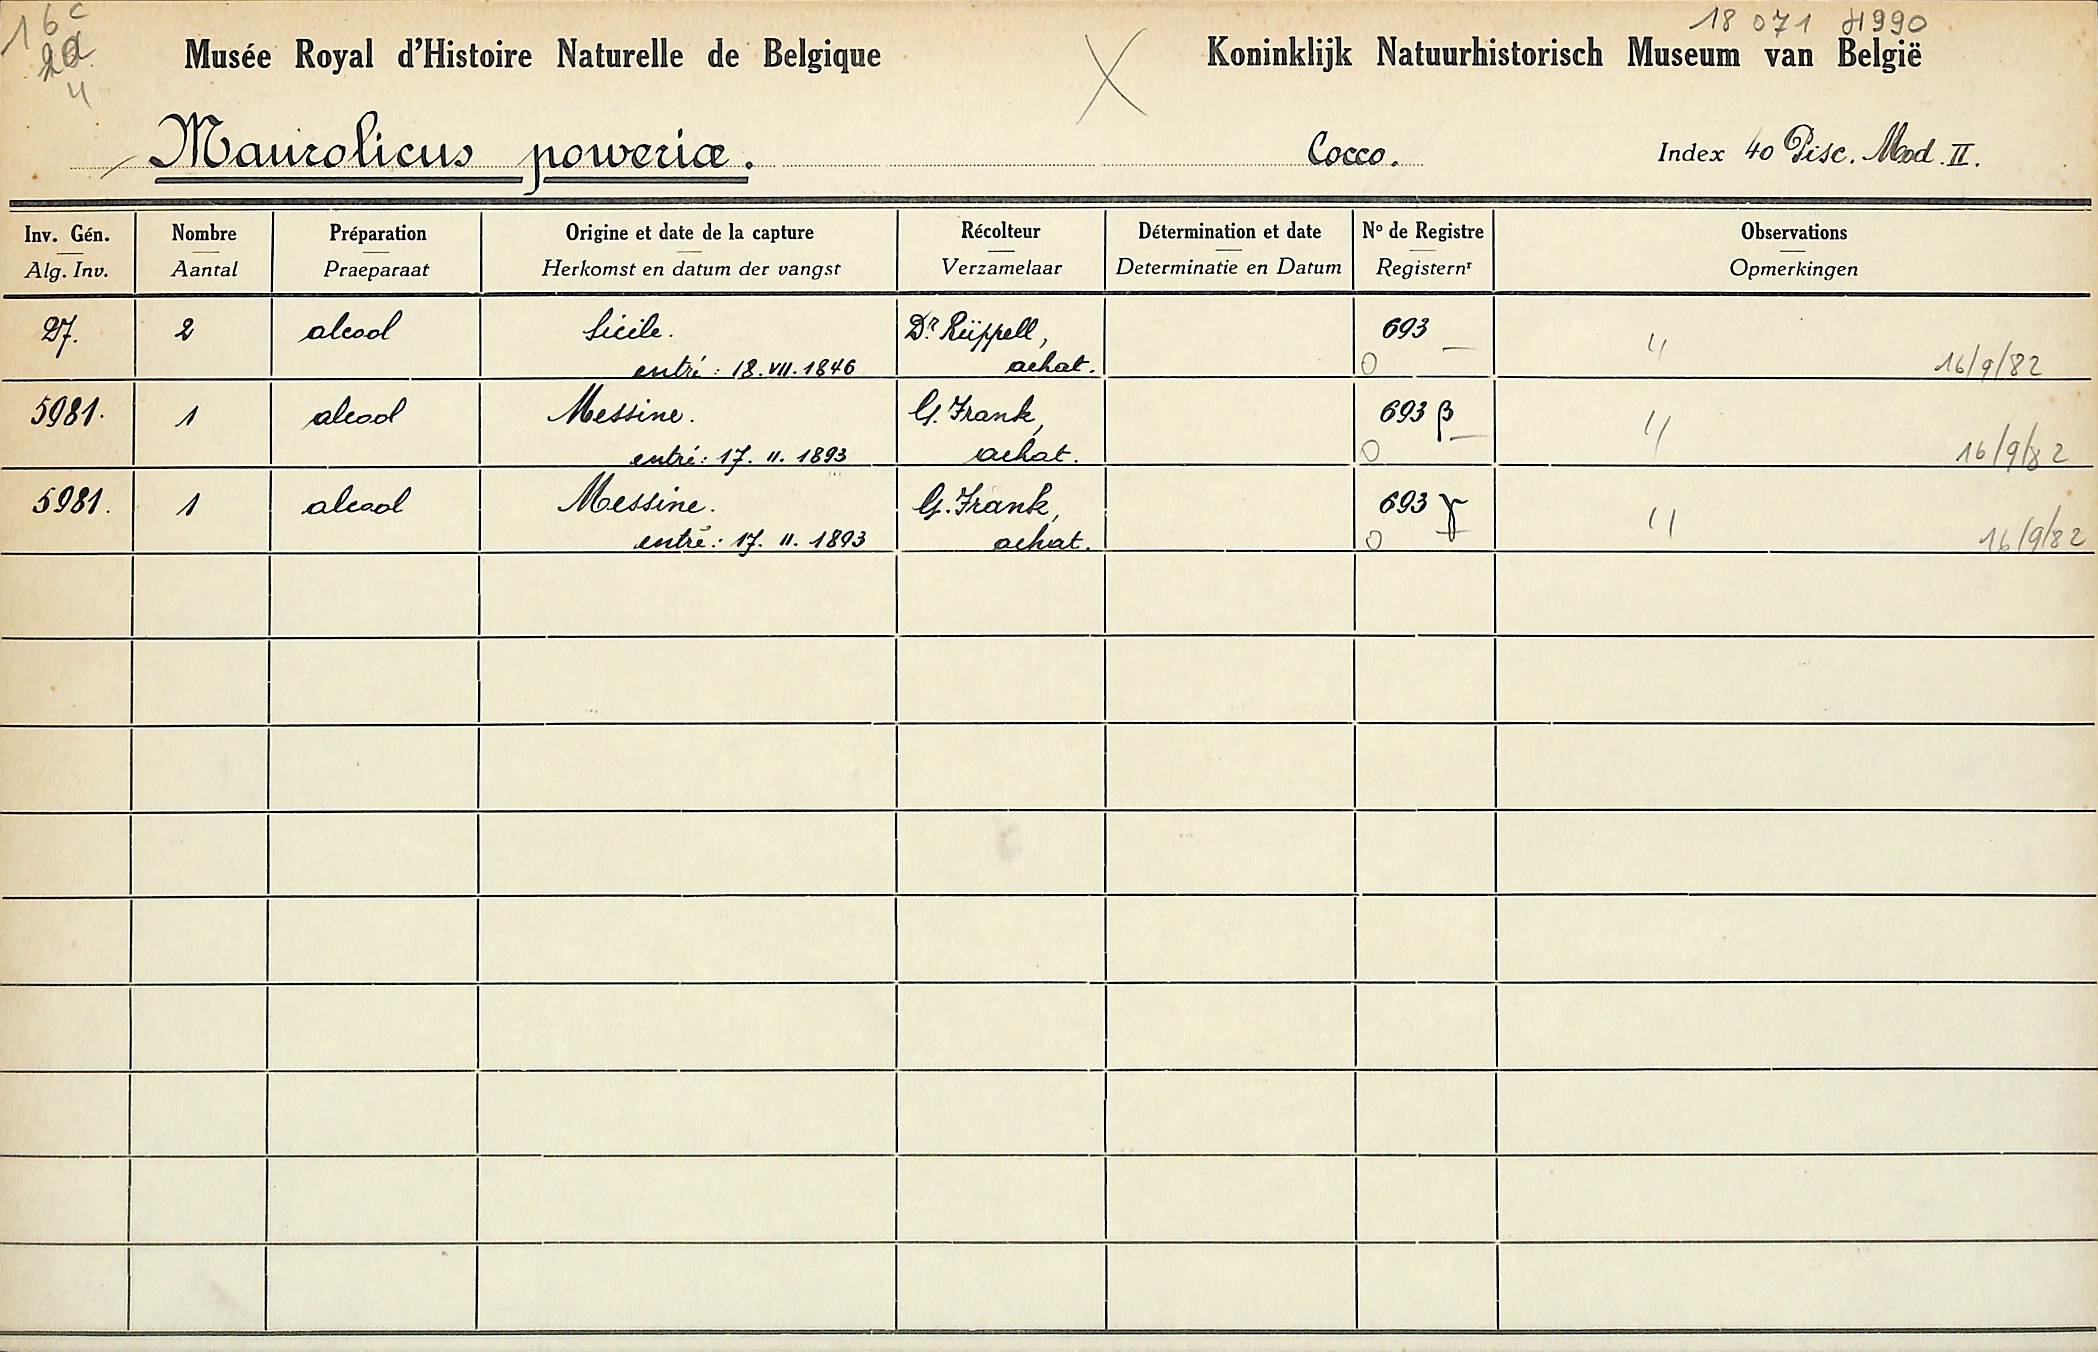 16c 18 071 H990
2a Musée Royal d'Histoire Naturelle de Belgique X Koninklijk Natuurhistorisch Museum van België
4
Maurolicus poweriæ. Cocco. Index 40 Pisc. Mod. II.
Inv. Gén. Nombre Préparation Origine et date de la capture Récolteur Détermination et date Nº de Registre Observations
Alg. Inv. Aantal Praeparaat Herkomst en datum der vangst Verzamelaar Determinatie en Datum Registernr Opmerkingen
27. 2 alcool Sicile. Dr. Rüppell, 693 "
entré : 18. VII. 1846 achat. 0 16/9/82
5981. 1 alcool Messine. G. Frank, 693 β "
entré : 17. II. 1893 achat. 0 16/9/82
5981. 1 alcool Messine. G. Frank, 693 γ "
entré : 17. II. 1893 achat. 0 16/9/82